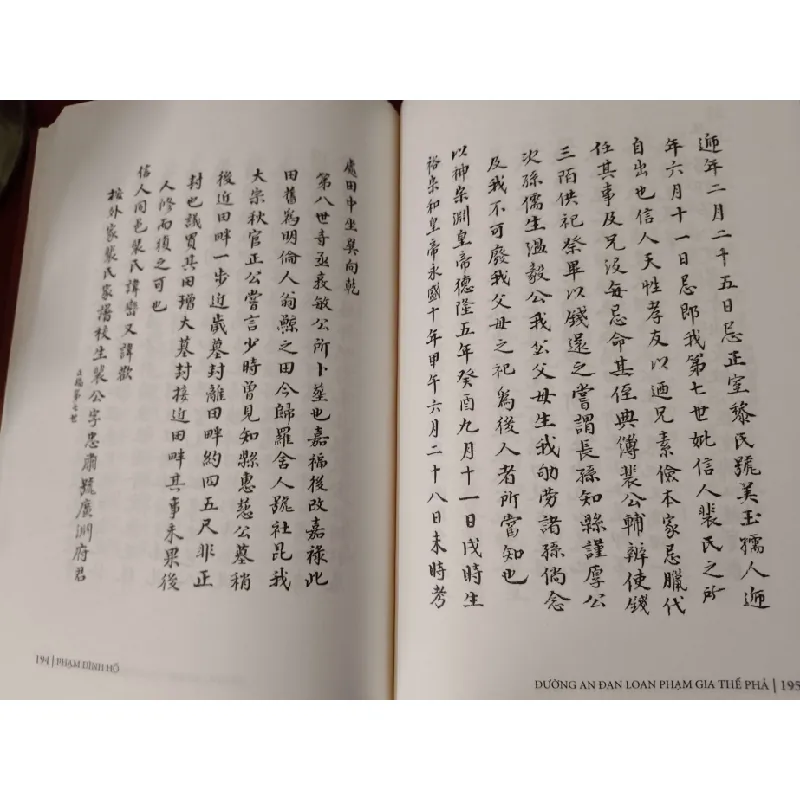 處田中坐巽向乾
第八世章丞義敏公所卜葬也嘉福後改嘉祿此
田舊爲明倫人翁鯨之田今歸羅舍人號社昆我
大宗秋官正公嘗言少時曾見知縣惠慈公墓稍
後近田畔一步近歲墓封離田畔約四五尺非正
封也議買其田增大墓封接近田畔其事未果後
人修而復之可也
信人同邑裴氏諱巒又諱歡
按外家裴氏家譜校生裴公字忠肅號廣淵府君
第七世
194 | PHẠM ĐÌNH HỔ
逓年二月二十五日忌正室黎氏號美玉孺人逓
年六月十一日忌即我第七世妣信人裴氏之所
自出也信人天性孝友以迺兄素儉本家忌臘代
任其事及兄沒每忌命其侄典傅裴公輔辨使錢
三陌供祀祭畢以錢還之嘗謂長孫知縣謹厚公
次孫儒生溫毅公我公父母生我劬勞諸孫倘念
及我不可廢我父母之祀爲後人者所當知也
以神宗淵皇帝德隆五年癸酉九月十一日戌時生
裕宗和皇帝永盛十年甲午六月二十八日未時考
DƯỠNG AN ĐAN LOAN PHẠM GIA THẾ PHẢ | 195